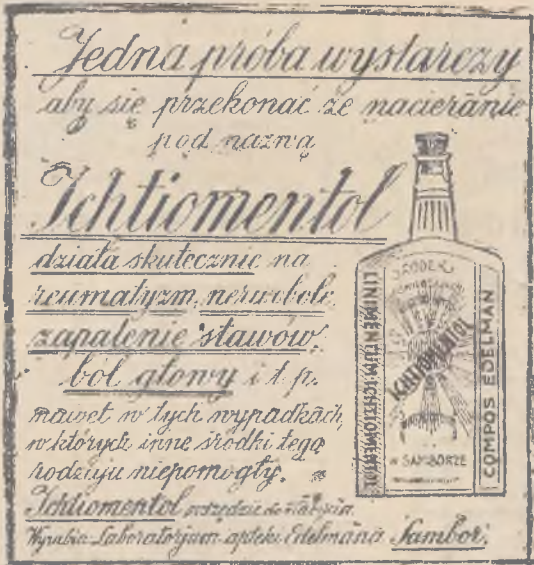 Jedna próba wystarczy
aby się przekonać że nacieranie
pod nazwą
Ichtiomentol
działa skutecznie na
reumatyzm, nerwobole,
zapalenie stawów,
ból głowy i t. p.
nawet w tych wypadkach,
w których inne środki tego
rodzaju niepomogły.
Ichtiomentol wszędzie do nabycia.
Wyrabia Laboratorjum apteki Edelmana, Sambor.
LINIMENTUM ICHTIOMENTOL
ŚRODEK
ICHTIOMENTOL
W SAMBORZE
COMPOS EDELMAN